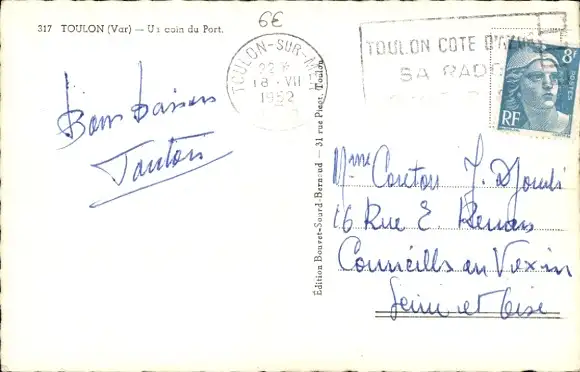 317 TOULON (Var) — Un coin du Port.
6€
TOULON-SUR-MER
22 H
18 · VII
1952
TOULON COTE D'AZUR
SA RADE
8F
POSTES
RF
Bons baisers
Tonton
Edition Bouvet-Sourd-Bernaud — 31 rue Picot, Toulon
Mme Couton J.
16 Rue E. Renan
Courcells en Vexin
Seine et Oise